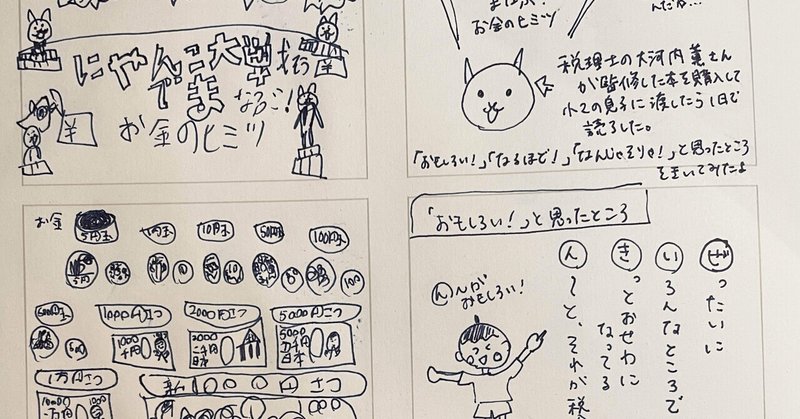 にゃんこ大戦争
でまなぶ!
お金のヒミツ
¥
¥
お金のヒミツ
税理士の大河内薫さん
が監修した本を購入して
小2の息子に渡したら1日で
読了した。
「おもしろい!」「なるほど!」「なんじゃそりゃ!」と思ったところ
を書いてみたよ
お金
5円玉
10円玉
50円玉
100円玉
500円玉
1000円さつ
2000円さつ
5000円さつ
1000
千円
2000
二千円
日本
5000
五千円
日本
1万円さつ
「おもしろい!」と思ったところ
ぜったいに
いろんなところで
きっとおせわに
なってる
ん〜と、それが税
んが
おもしろい!